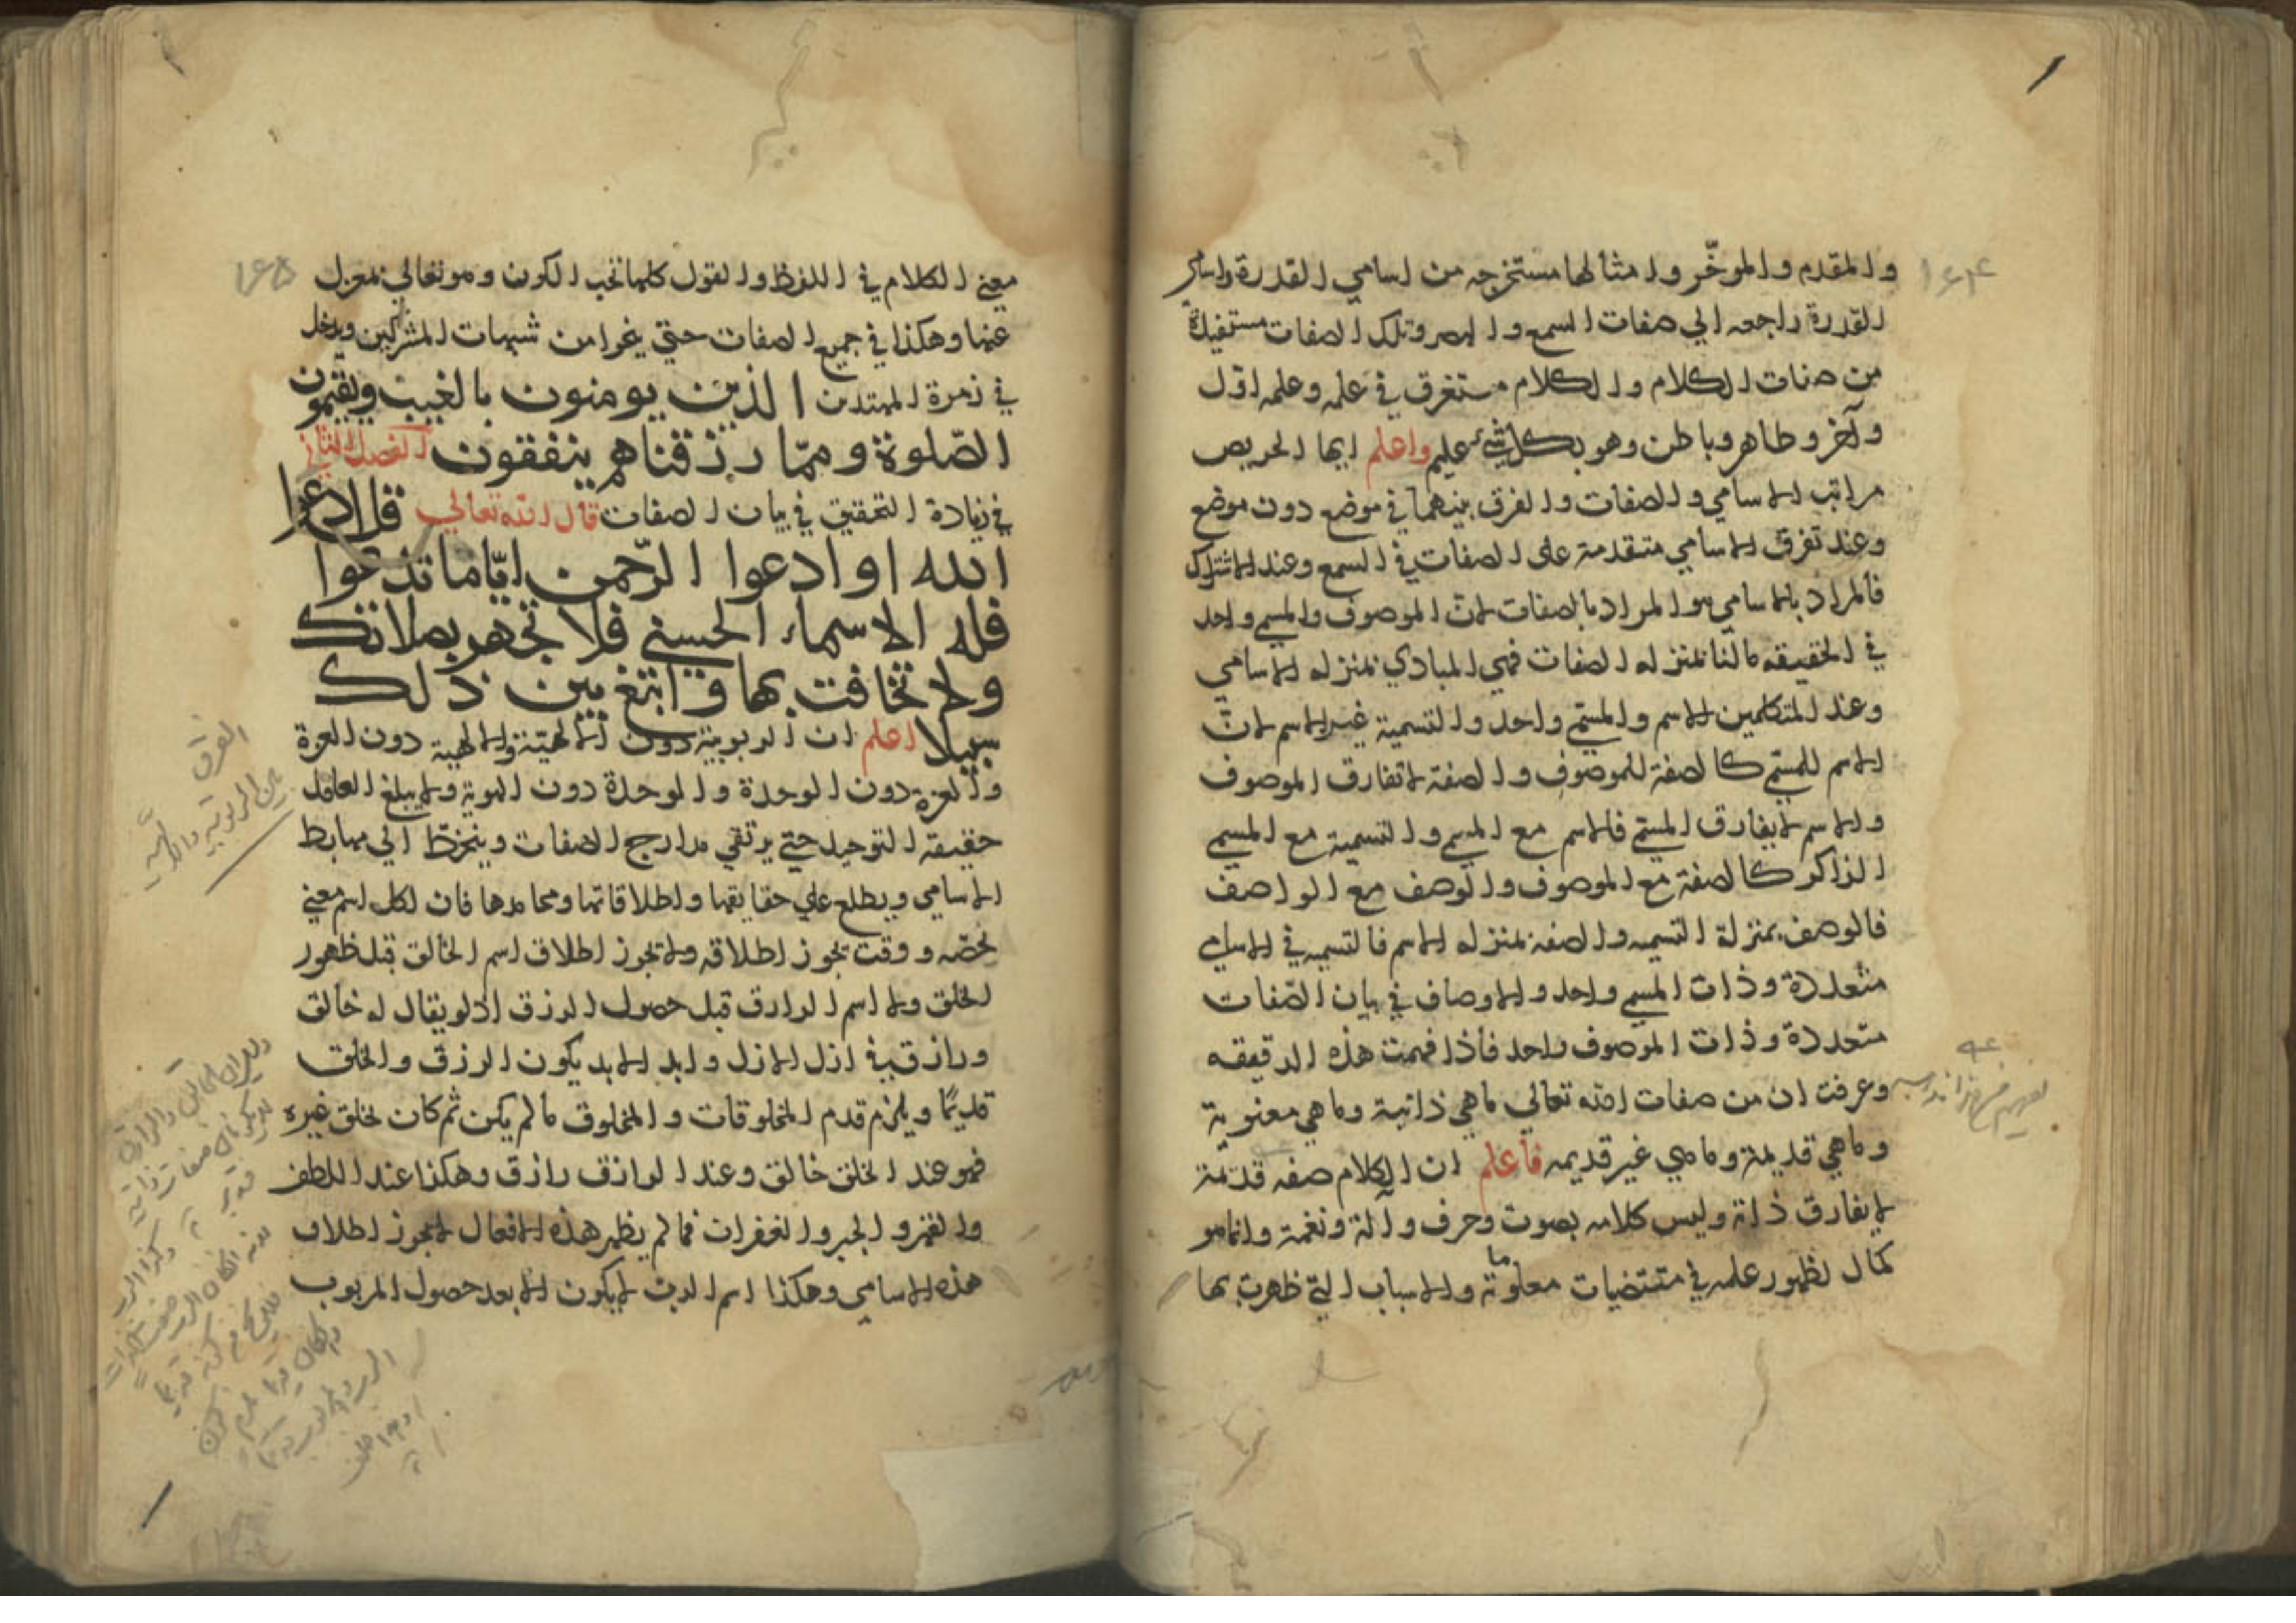 والمقدم والموخّر وامثالها مستخرجه من اسامي القدرة واسامي
القدرة راجعه الي صفات السمع والبصر وتلك الصفات مستفيدة
من صفات الكلام والكلام مستغرق في علمه وعلمه اوّل
وآخر وظاهر وباطن وهو بكل شيء عليم واعلم ايها الحريص
مراتب الاسامي والصفات والفرق بينهما في موضع دون موضع
وعند تفرق الاسامي متقدمة على الصفات في السمع وعند الاشتراك
فالمراد بالاسامي هو المراد بالصفات لانّ الموصوف والمسمي واحد
في الحقيقه مالنا بمنزله الصفات فهي المبادي بمنزله الاسامي
وعند المتكلمين الاسم والمسمّي واحد والتسمية غير الاسم لانّ
الاسم للمسمّي كالصفة للموصوف والصفة لاتفارق الموصوف
والاسم لايفارق المسمّي فالاسم مع المسمي والتسمية مع المسمي
الذاكر كالصفة مع الموصوف والوصف مع الواصف
فالوصف بمنزلة التسميه والصفه بمنزله الاسم فالتسميه في الاسامي
متعددة وذات المسمي واحد والاوصاف في بيان الصّفات
متعددة وذات الموصوف واحد فاذا فهمت هذه الدقيقه
وعرفت ان من صفات الله تعالي ماهي ذاتية وماهي معنوية
وماهي قديمة وماهي غير قديمه فاعلم ان الكلام صفه قديمة
لايفارق ذاته وليس كلامه بصوت وحرف وآلة ونغمة وانماهو
كمال لظهور علمه في مقتضيات معلوماته والاسباب التي ظهرت بها
١٦٤
معني الكلام في اللفظ والقول كلها تحت الكون وهو تعالي بمعزل
عنها وهكذا في جميع الصفات حتي يغرا من شبهات المشركين ويدخل
في زمرة المهتدين الذين يومنون بالغيب ويقيمون
الصّلوة وممّا رزقناهم ينفقون الفصل الثاني
في زيادة التحقيق في بيان الصفات قال الله تعالي قل ادعوا
الله او ادعوا الرّحمن ايّاما تدعوا
فله الاسماء الحسني فلا تجهر بصلاتك
ولا تخافت بها وابتغ بين ذلك
سبيلا اعلم ان الربوبية دون الالهيّة والالهية دون العزة
والعزة دون الوحدة والوحدة دون الهوية ولايبلغ العاقل
حقيقة التوحيد حتي يرتقي مدارج الصفات وينخرط الي مهابط
الاسامي ويطلع علي حقايقها واطلاقاتها ومحامدها فان لكل اسم معني
يخصّه ووقت يجوز اطلاقه ولايجوز اطلاق اسم الخالق قبل ظهور
الخلق ولا اسم الرازق قبل حصول الرزق اذلو يقال له خالق
ورازق في ازل الازل وابد الابد يكون الرزق والخلق
قديمًا ويلزم قدم المخلوقات والمخلوق مالم يكن ثم كان بخلق غيره
فهو عند الخلق خالق وعند الرازق رازق وهكذا عند اللطف
والقهر والجبر والغفران فمالم يظهر هذه الافعال لايجوز اطلاق
هذه الاسامي وهكذا اسم الرب لايكون الا بعد حصول المربوب
١٦٥
الفرق
بين الربوبية والالهية